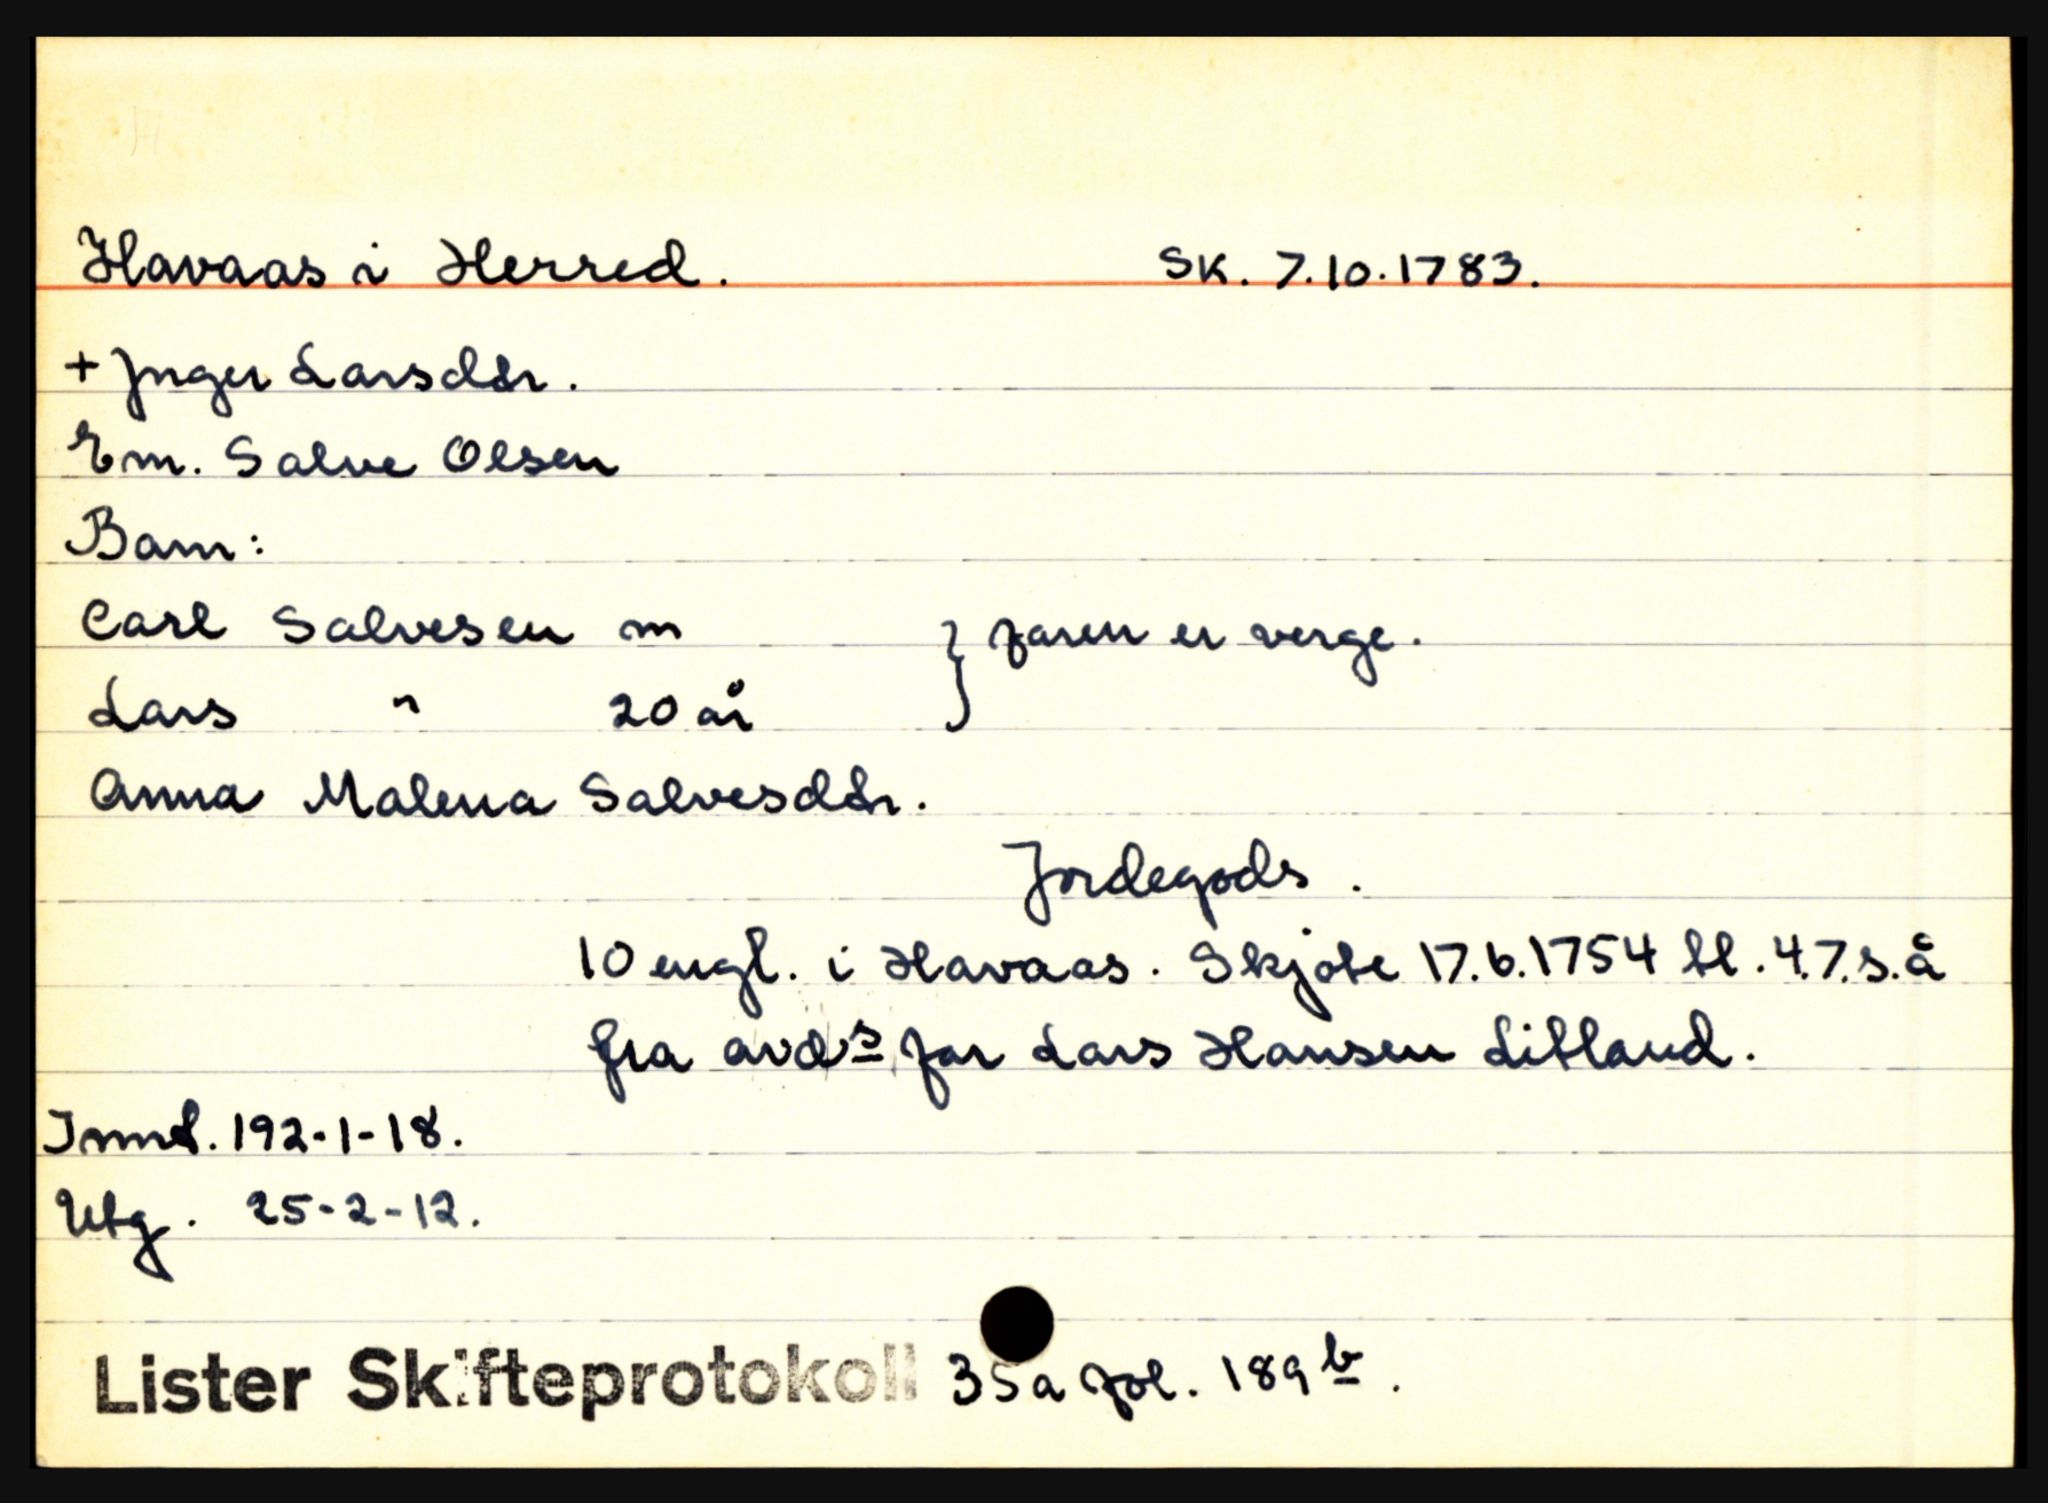 Havaas i Herred. SK. 7.10.1783.
+ Inger Larsdtr.
Em. Salve Olsen
Barn:
Carl Salvesen m } faren er verge.
Lars " 20 år
Anna Malena Salvesdtr.
Jordegods.
10 engl. i Havaas. Skjøte 17.6.1754 tl. 4.7. s.å
fra avds far Lars Hansen Litland.
Innt. 192-1-18.
Utg. 25-2-12.
Lister Skifteprotokoll 35a fol. 189b.